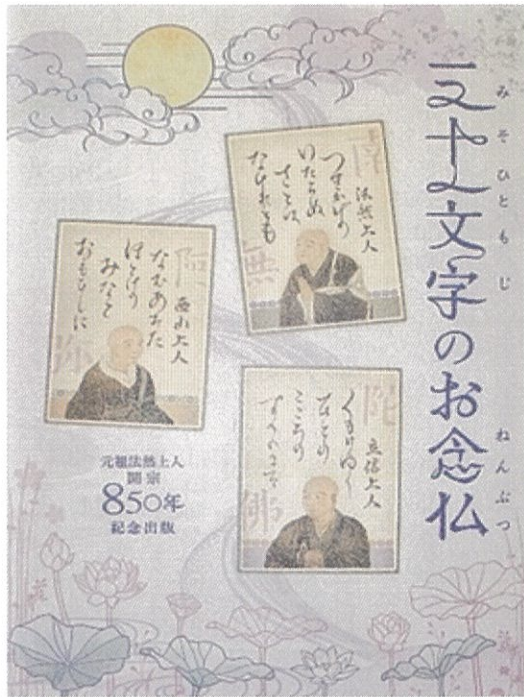 三十一文字のお念仏
みそひともじ
ねんぶつ
南無
法然上人
つきかけの
いたらぬ
さとは
なけれとも
阿弥
西山上人
なむあみた
ほとけの
みなを
おもひしに
陀佛
立信上人
くもりゆく
ひとの
こころの
元祖法然上人
開宗
850年
記念出版